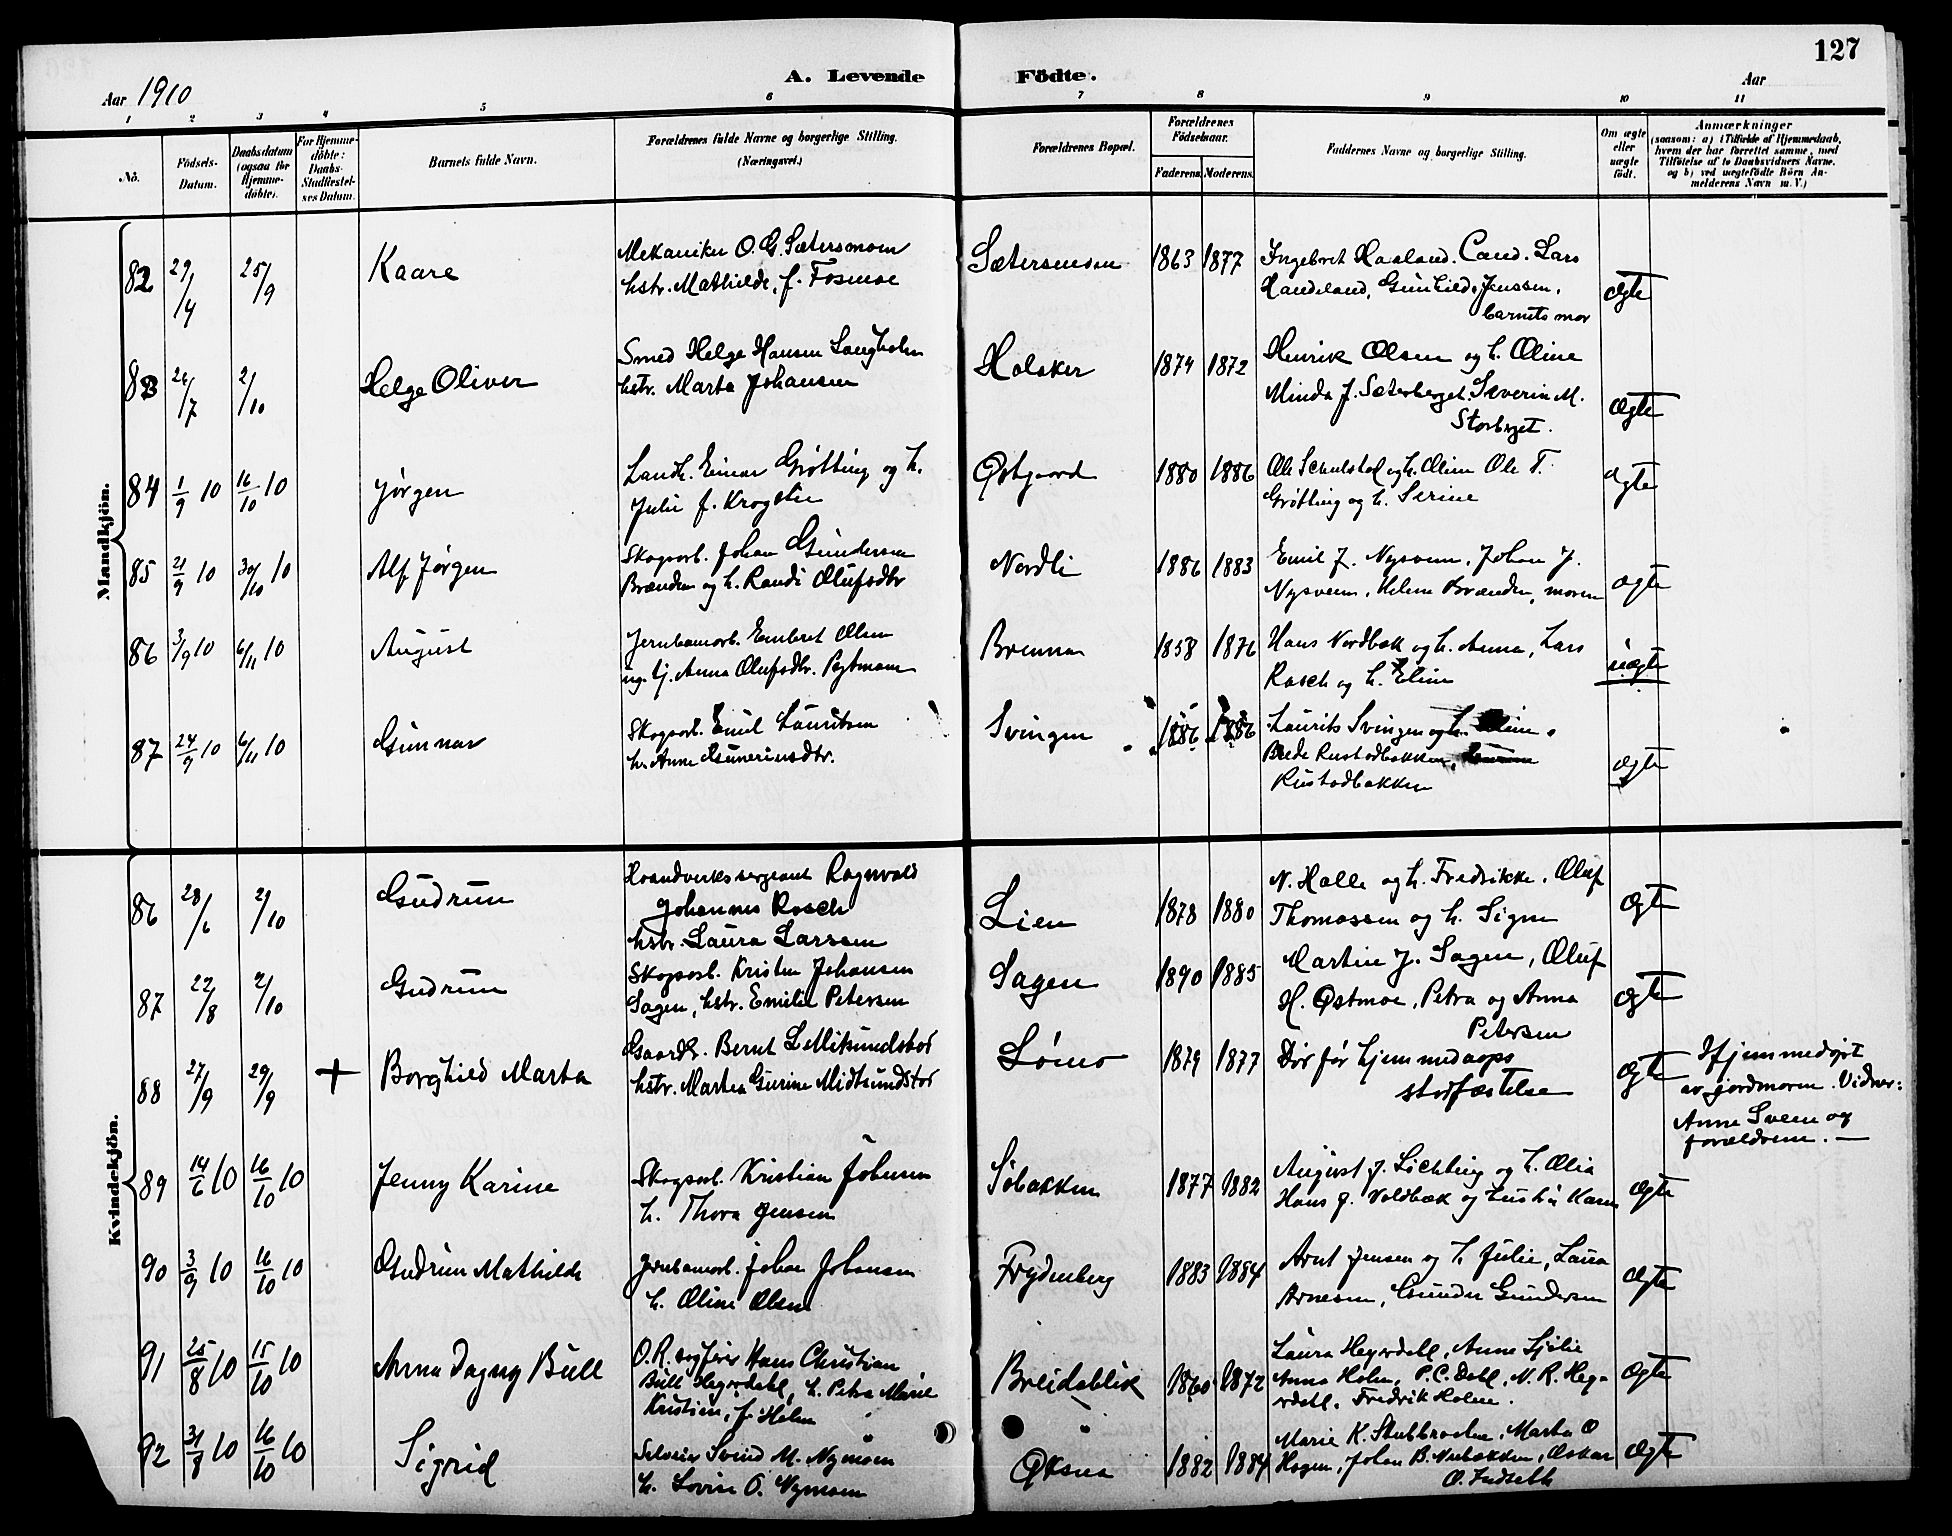 127
A. Levende Födte.
Aar 1910
Aar
1 2 3 4 5 6 7 8 9 10 11
No.
Födsels-Datum.
Daabsdatum (ogsaa for Hjemme-döbte).
For Hjemme-döbte: Daabs-Stadfæstel-ses Datum.
Barnets fulde Navn.
Forældrenes fulde Navne og borgerlige Stilling.
(Næringsvei.)
Forældrenes Bopæl.
Forældrenes Födselsaar.
Faderens. Moderens.
Faddernes Navne og borgerlige Stilling.
Om ægte eller uægte födt.
Anmærkninger
(saasom: a) i Tilfælde af Hjemmedaab,
hvem der har forrettet samme, med
Tilföielse af to Daabsvidners Navne,
og b) ved uægtefödte Börn An-
melderens Navn m. V.)
Mandkjön.
82 29/4 25/9 Kaare
Mekaniker O. G. Sætersmoen
hstr. Mathilde, f. Fosmoe
Sætersmoen 1863 1877
Ingebret Haaland. Cand. Lars
Handeland, Gunhild Jenssen,
barnets mor
ægte
83 26/7 2/10 Helge Oliver
Smed Helge Hansen Langholen
hstr. Marta Johansen
Holaker 1874 1872
Henrik Olsen og h. Oline
Minda J. Sæterberget. Severin M.
Storberget.
ægte
84 1/9 10 16/10 10 Jørgen
Landh. Einar Grøtting og h.
Julie f. Krogstie
Østgaard 1880 1886
Ole Schulstad og h. Oline Ole T.
Grøtting og h. Serine
ægte
85 21/9 10 30/10 10 Alf Jørgen
Skogsarb. Johan Gundersen
Brænden og h. Randi Olufsdtr
Nordli 1886 1883
Emil J. Nysveen, Johan J.
Nysveen, Helene Brænden, moren
ægte
86 3/9 10 6/11 10 August
Jernbanearb. Embret Olsen
ug. tj. Anna Olufsdtr.
Brenna 1858 1876
Hans Nordbæk og h. Anna, Lars
Rasch og h. Eline
uægte
87 24/9 10 6/11 10 Gunnar
Skogsarb. Emil Lauritsen
h. Anne Guneriusdtr.
Svingen 1886 1886
Laurits Svingen og h.
Brede Rustadbakken,
Rustadbakken
ægte
Kvindekjön.
86 28/6 2/10 Gudrun
Haandverkssergeant Ragnvald
Johannes Rasch
hstr. Laura Larssen
Lien 1878 1880
N. Halle og h. Fredrikke, Oluf
Thomassen og h. Signe
ægte
87 22/8 2/10 Gudrun
Skogsarb. Kristen Johansen
Sagen, hstr. Emilie Petersen
Sagen 1890 1885
Martin J. Sagen, Oluf
H. Østmoe, Petra og Anna
Petersen
ægte
88 27/9 29/9 + Borghild Marta
Gaardbr. Bernt L Mitsundstad
hstr. Martea Gurine Midtsundstad
Lømo 1879 1877
Dør før hjemmedaaps
stadfæstelse
ægte
Hjemmedøpt
av jordmoren. Vidner:
Anne Sveen og
forældrene. —
89 14/6 10 16/10 10 Jenny Karine
Skogsarb. Kristian Johnsen
h. Thora Jensen
Søbakken 1877 1882
August J. Lichting og h. Olia
Hans J. Voldbæk og hustru Karen
ægte
90 3/9 10 16/10 10 Gudrun Mathilde
Jernbanearb. Johan Johansen
h. Oline Olsen
Frydenberg 1883 1884
Arnt Jensen og h. Julie, Laura
Arnesen, Gunder Gundersen
ægte
91 25/8 10 15/10 10 Anna Dagny Bull
O.R. sagfører Hans Christian
Bull Heyerdahl, h. Petra Marie
Kristine, f. Holm
Breidablik 1860 1872
Laura Heyerdahl, Anne Ljølie
Anna Holm, P. C. Dahl, N. R. Hey-
erdahl. Fredrik Holm.
ægte
92 31/8 10 16/10 10 Sigrid
Selveier Svend M. Nymoen
h. Lovise O. Nymoen
Øksna 1882 1884
Marie K. Stubbraaten, Marta O
Hagen, Johan B. Nubakken, Oskar
O. Indseth
ægte